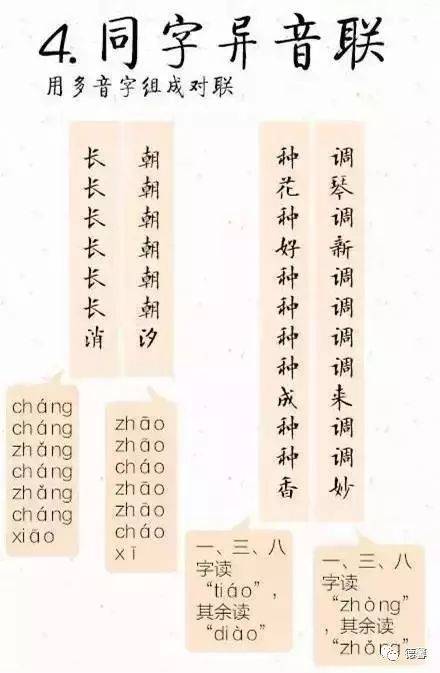 4.同字异音联
用多音字组成对联
朝朝朝朝朝朝汐
长长长长长长消
调琴调新调调调调来调调妙
种花种好种种种种成种种香
cháng
cháng
zhǎng
cháng
zhǎng
cháng
xiāo
zhāo
zhāo
cháo
zhāo
zhāo
cháo
xī
一、三、八
字读
“tiáo”，
其余读
“diào”
一、三、八
字读
“zhòng”
，其余读
“zhǒng”
德馨